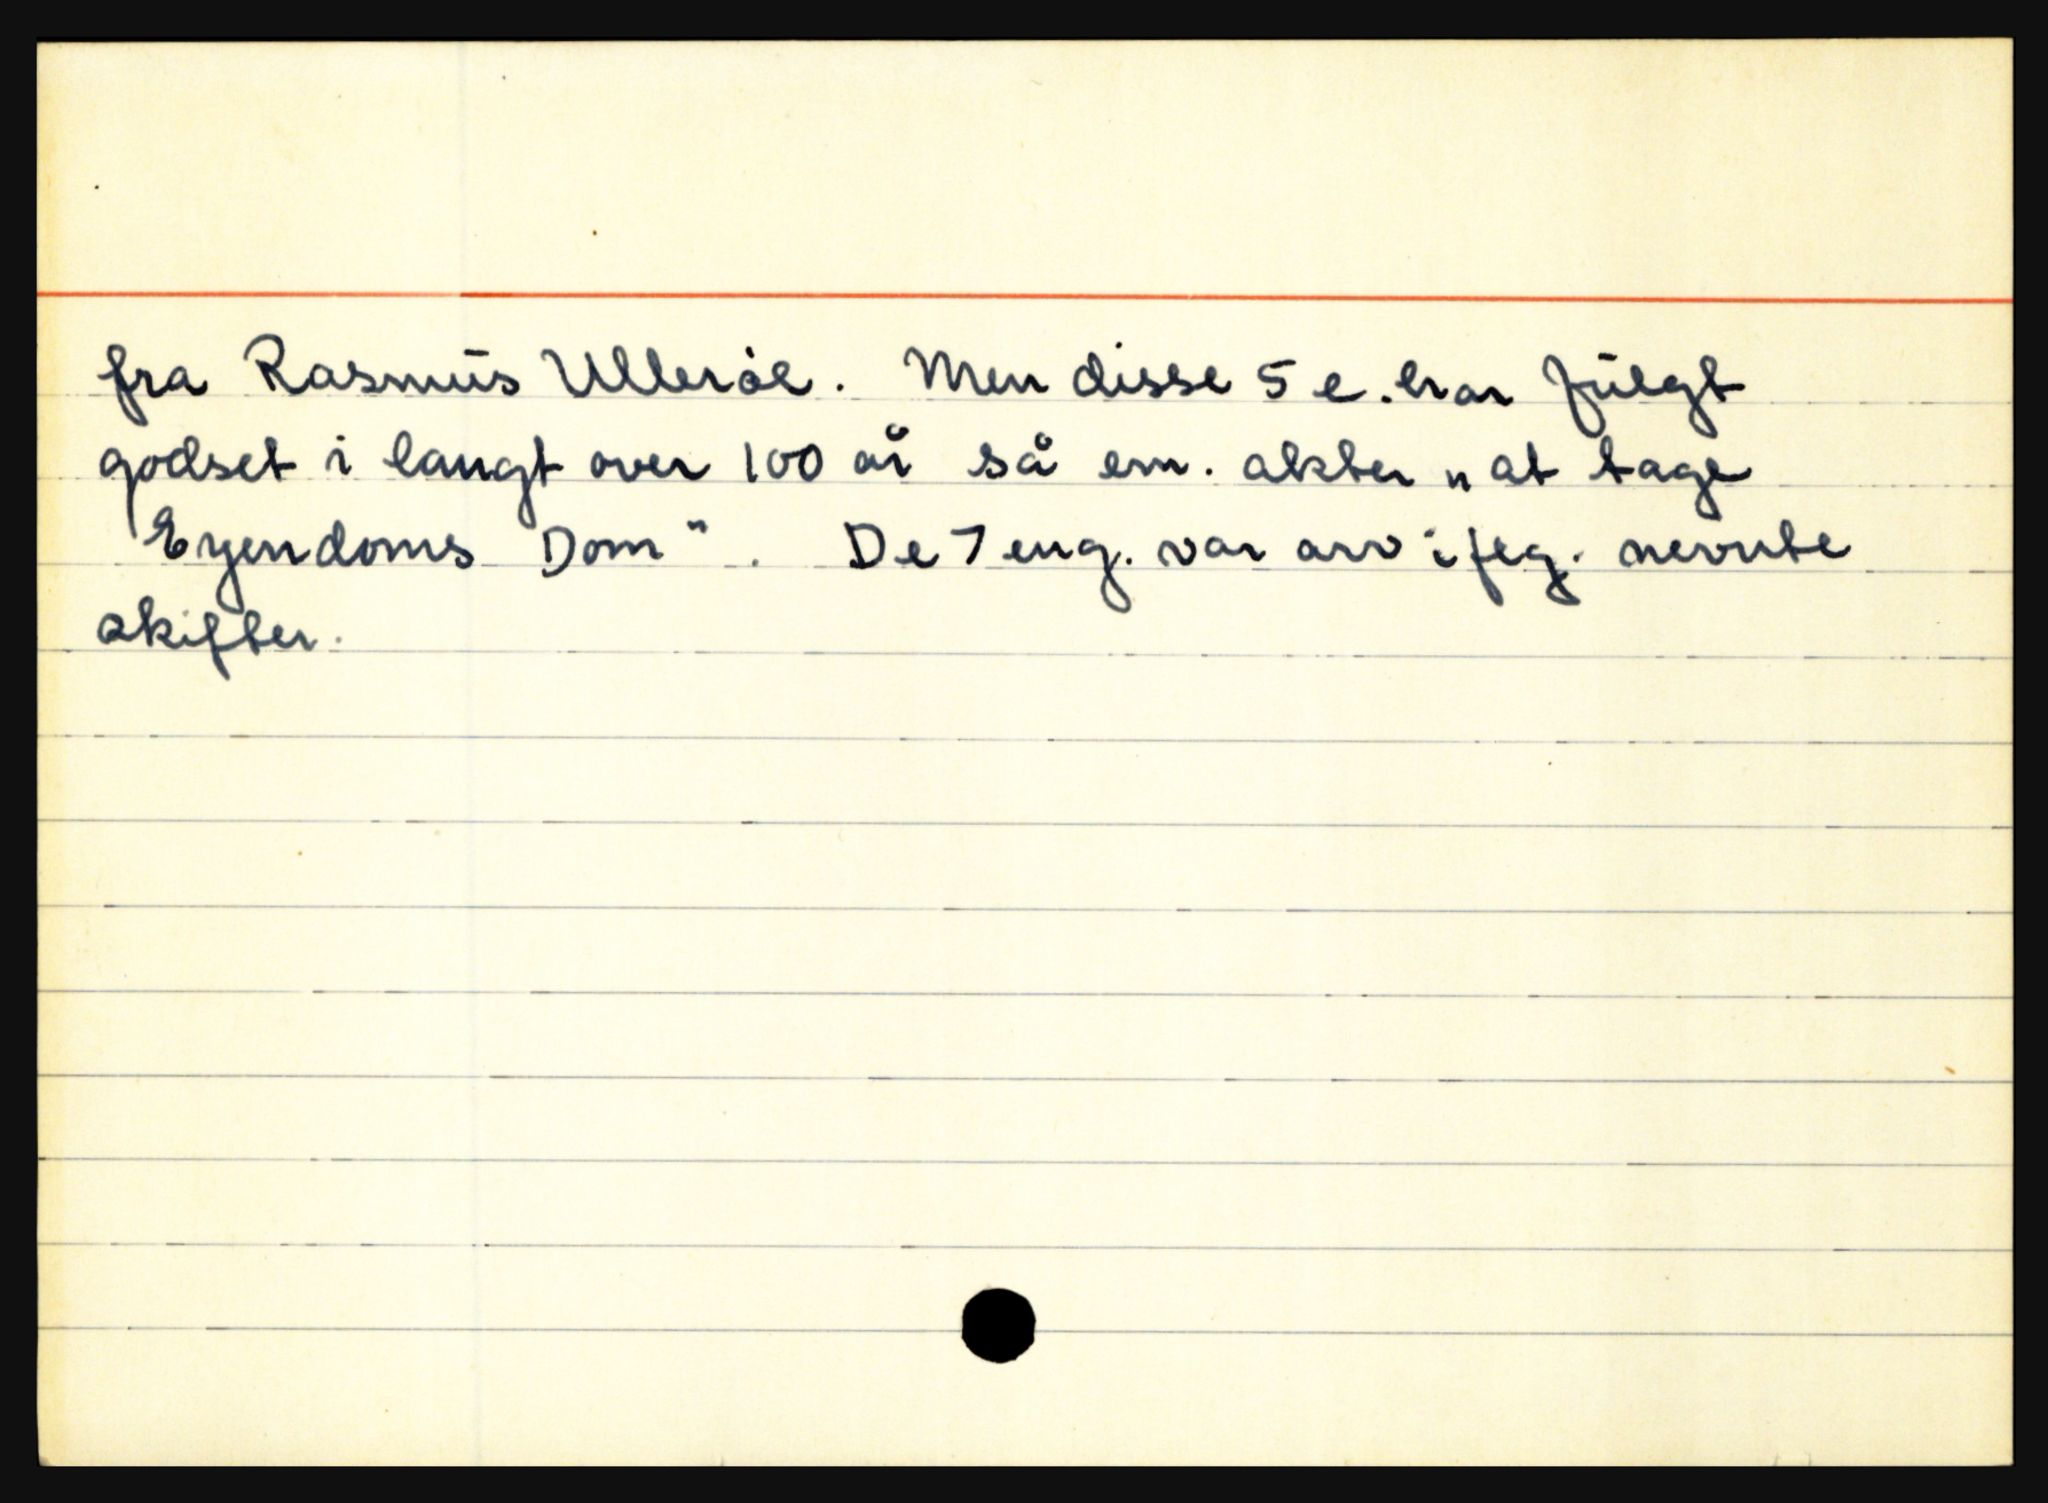 fra Rasmus Ullerøe. Men disse 5 e. har fulgt
godset i langt over 100 år så em. akter „at tage
Eyendoms Dom". De 7 eng. var arv iflg. nevnte
skifter.